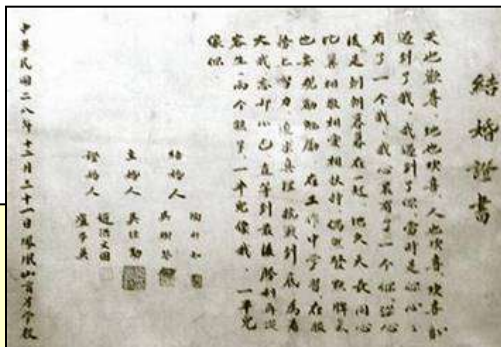 結婚證書
天也歡喜、地也歡喜、人也歡喜、歡喜你
遇到了我、我遇到了你、當時是你心上
有了一个我、我心裏有了一个你、從今
後是朝朝暮暮在一起、地久天長、同心
比翼相敬相愛相扶持、偶然發脾氣
也要規勸勉勵、在工作中學習、在服
務上努力、追求真理、抗戰到底、為着
大我忘却小己、直等到最後勝利、再從
容生一兩个孩子、一半兒像我、一半兒
像你、
結婚人 陶行知
吳樹琴
主婚人 吳
證婚人 趙洪文國
中華民國二八年十二月三十一日鳳凰山育才學校